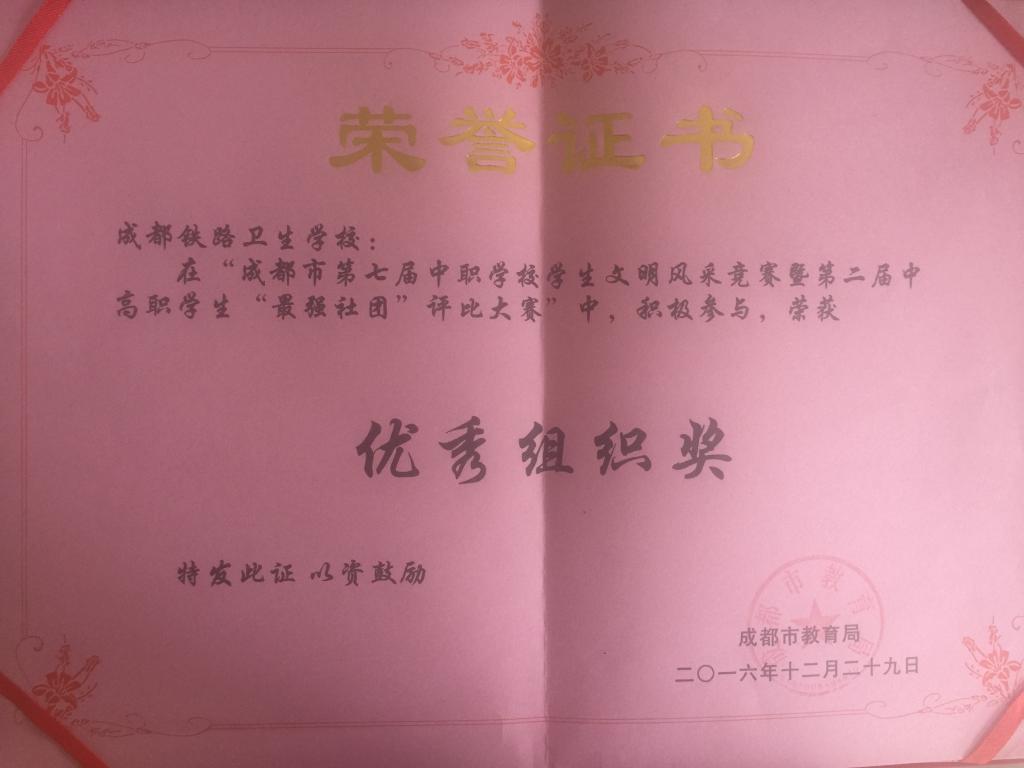 荣誉证书
成都铁路卫生学校：
在“成都市第七届中职学校学生文明风采竞赛暨第二届中
高职学生“最强社团”评比大赛”中，积极参与，荣获
优秀组织奖
特发此证 以资鼓励
成都市教育局
成都市教育局
二〇一六年十二月二十九日